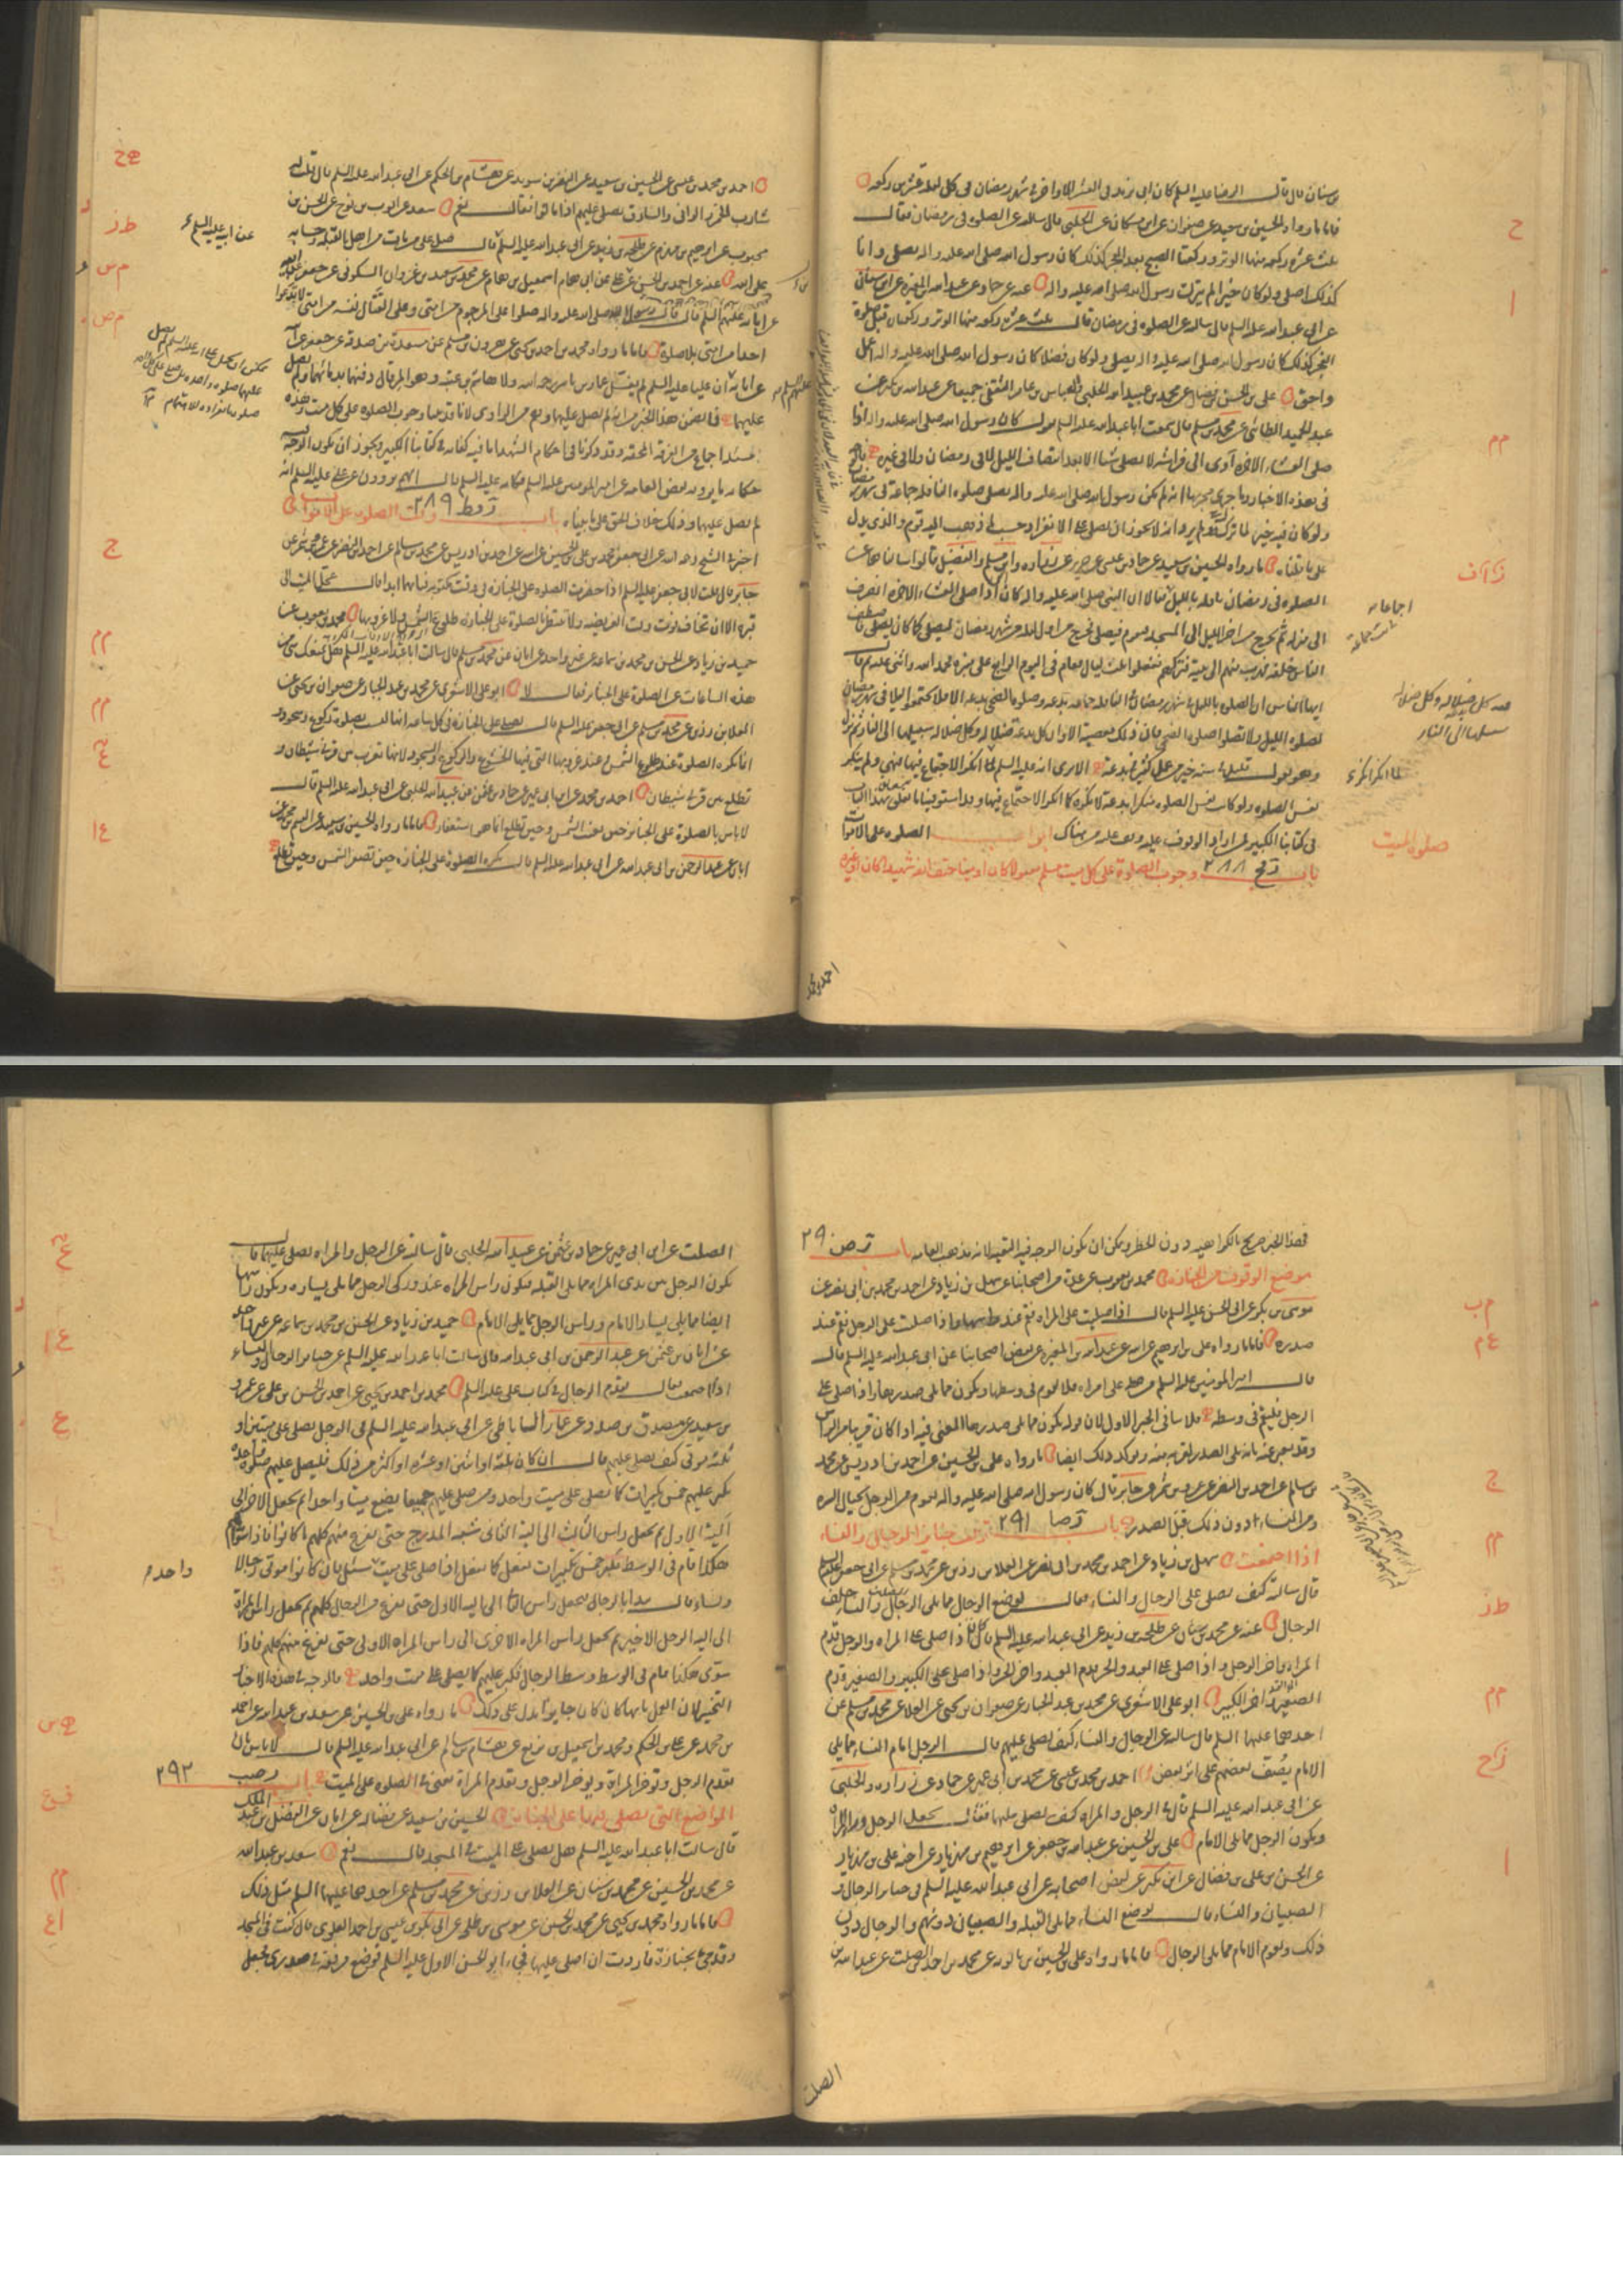 بن سنان قال قال الرضا عليه السلم كان ابى يزيد فى العشر الاواخر فى شهر رمضان فى كل ليلة عشرين ركعة
فاما ما رواه الحسين بن سعيد عن صفوان عن ابن مسكان عن الحلبى قال سالته عن الصلوة فى رمضان فقال
ثلث عشرة ركعة منها الوتر وركعتا الصبح بعد الفجر كذلك كان رسول الله صلى الله عليه واله يصلى وانا
كذلك اصلى ولو كان خيرا لم يتركه رسول الله صلى الله عليه واله عنه عن حماد عن عبد الله بن المغيرة عن ابن سنان
عن ابى عبد الله عليه السلم قال سالته عن الصلوة فى رمضان قال ثلث عشرة ركعة منها الوتر وركعتان قبل صلوة
الفجر كذلك كان رسول الله صلى الله عليه واله يصلى ولو كان فضلا كان رسول الله صلى الله عليه واله اعمل
واحق على بن الحسن بن فضال عن محمد بن عبيد الله الحلبى والعباس بن عامر الثقفى جميعا عن عبد الله بن بكير عن
عبد الحميد الطائى عن محمد بن مسلم قال سمعت ابا عبد الله عليه السلم يقول كان رسول الله صلى الله عليه واله اذا
صلى العشاء الاخرة آوى الى فراشه لا يصلى شيئا الا بعد انتصاف الليل لا فى رمضان ولا فى غيره فالوجه
فى هذه الاخبار وما جرى مجراها انه لم يكن رسول الله صلى الله عليه واله يصلى صلوة النافلة جماعة فى شهر رمضان
ولو كان فيه خير لما تركه ولم يرد انه لا يجوز ان يصلى على الانفراد حسب ما ذهب اليه قوم والذى يدل
على ما قلناه ما رواه الحسين بن سعيد عن حماد بن عيسى عن حريز عن زرارة وابن مسلم والفضيل قالوا سالناهما عن
الصلوة فى رمضان نافلة بالليل فقالا ان النبى صلى الله عليه واله كان اذا صلى العشاء الاخرة انصرف
الى منزله ثم يخرج من اخر الليل الى المسجد فيقوم فيصلى فخرج من اول ليلة من شهر رمضان ليصلى كما كان يصلى فاصطف
الناس خلفه فهرب منهم الى بيته وتركهم ففعلوا ثلث ليال فقام فى اليوم الرابع على منبره فحمد الله واثنى عليه ثم قال
ايها الناس ان الصلوة بالليل فى شهر رمضان النافلة جماعة بدعة وصلوة الضحى بدعة الا فلا تجتمعوا ليلا فى شهر رمضان
لصلوة الليل ولا تصلوا صلوة الضحى فان ذلك معصية الا وان كل بدعة ضلالة وكل ضلالة سبيلها الى النار ثم نزل
وهو يقول قليل فى سنة خير من كثير فى بدعة الا ترى انه عليه السلم لما انكر الاجتماع فيها نهى ولم ينكر
نفس الصلوة ولو كانت نفس الصلوة منكرا بدعة لانكره كما انكر الاجتماع فيها وقد استوفينا ما يتعلق بهذا الباب
فى كتابنا الكبير فمن اراد الوقوف عليه وقف عليه من هناك ابواب الصلوة على الاموات
باب رفح ٢٨٨ وجوب الصلوة على كل ميت مسلم مقتولا كان او ميتا حتف انفه شهيدا كان او غيره
صلوة الميت
احمد بن محمد
احمد بن محمد بن عيسى عن الحسين بن سعيد عن النضر بن سويد عن هشام بن الحكم عن ابى عبد الله عليه السلم قال قلت له
شارب الخمر والزانى والسارق يصلى عليهم اذا ماتوا فقال نعم سعد عن ايوب بن نوح عن الحسن بن
محبوب عن ابراهيم بن مهزم عن طلحة بن زيد عن ابى عبد الله عليه السلم قال صل على من مات من اهل القبلة وحسابه
على الله عنه عن احمد بن الحسن بن على عن ابى همام اسمعيل بن همام عن محمد بن سعيد بن غزوان السكونى عن جعفر عن ابيه
عن ابائه عليهم السلم قال قال رسول الله صلى الله عليه واله صلوا على المرجوم من امتى وعلى القتال نفسه من امتى لا تدعوا
احدا من امتى بلا صلوة فاما ما رواه محمد بن احمد بن يحيى عن هرون بن مسلم عن مسعدة بن صدقة عن جعفر عن ابيه
عن ابائه ان عليا عليه السلم لم يغسل عمار بن ياسر رحمه الله ولا هاشم بن عتبة وهو المرقال دفنهما بدمائهما ولم يصل
عليهما فما تضمن هذا الخبر من انه لم يصل عليهما وهم من الراوى لانا قد بينا وجوب الصلوة على كل ميت وهذه
مسئلة اجماع من الفرقة المحقة وقد ذكرنا فى احكام الشهداء ما فيه كفاية فى كتابنا الكبير ويجوز ان يكون الوجه
حكاية ما يرويه بعض العامة عن امير المؤمنين عليه السلم فكانه عليه السلم قال انهم يروون عن على عليه السلم انه
لم يصل عليهما وذلك خلاف الحق على ما بيناه باب رفط ٢٨٩ وقت الصلوة على الاموات
اخبرنى الشيخ رحمه الله عن ابى جعفر محمد بن على بن الحسين عن ابيه عن احمد بن ادريس عن محمد بن سالم عن احمد بن النضر عن عمرو بن شمر عن
جابر قال قلت لابى جعفر عليه السلم اذا حضرت الصلوة على الجنازة فى وقت مكتوبة فبايهما ابدا قال عجل الميت الى
قبره الا ان تخاف فوت وقت الفريضة ولا تنتظر بالصلوة على الجنازة طلوع الشمس ولا غروبها محمد بن يعقوب عن
حميد بن زياد عن الحسن بن محمد بن سماعة عن غير واحد عن ابان عن محمد بن مسلم قال سالت ابا عبد الله عليه السلم هل يمنعك شىء من
هذه الساعات عن الصلوة على الجنائز فقال لا ابو على الاشعرى عن محمد بن عبد الجبار عن صفوان بن يحيى عن
العلا بن رزين عن محمد بن مسلم عن ابى جعفر عليه السلم قال يصلى على الجنازة فى كل ساعة انها ليست بصلوة ركوع وسجود
انما تكره الصلوة عند طلوع الشمس وعند غروبها التى فيها الخشوع والركوع والسجود لانها تغرب بين قرنى شيطان و
تطلع بين قرنى شيطان احمد بن محمد عن ابن ابى عمير عن حماد بن عثمن عن عبيد الله الحلبى عن ابى عبد الله عليه السلم قال
لا باس بالصلوة على الجنائز حين تغيب الشمس وحين تطلع انما هو استغفار فاما ما رواه الحسين بن سعيد عن القسم بن محمد عن
ابان عن عبد الرحمن بن ابى عبد الله عن ابى عبد الله عليه السلم قال تكره الصلوة على الجنازة حين تصفر الشمس وحين تطلع
عن ابيه عليه السلم
فهذا الخبر صريح بالكراهية دون الحظر ويمكن ان يكون الوجه فيه التقية لانه مذهب العامة باب رص ٢٩٠
موضع الوقوف من الجنازة محمد بن يعقوب عن عدة من اصحابنا عن سهل بن زياد عن احمد بن محمد بن ابى نصر عن
موسى بن بكر عن ابى الحسن عليه السلم قال اذا صليت على المراة فقم عند راسها واذا صليت على الرجل فقم عند
صدره فاما ما رواه على بن ابرهيم عن ابيه عن عبد الله بن المغيرة عن بعض اصحابنا عن ابى عبد الله عليه السلم قال
قال امير المؤمنين عليه السلم من صلى على امراة فلا يقوم فى وسطها ويكون مما يلى صدرها واذا صلى على
الرجل فليقم فى وسطه فلا ينافى الخبر الاول لان قوله يكون مما يلى صدرها المعنى فيه اذا كان قريبا من الراس
وقد يعبر عنه بانه يلى الصدر لقربه منه ويؤكد ذلك ايضا ما رواه على بن الحسين عن احمد بن ادريس عن محمد
بن سالم عن احمد بن النضر عن عمرو بن شمر عن جابر قال كان رسول الله صلى الله عليه واله يقوم من الرجل بحيال السرة
ومن النساء ادون ذلك قبل الصدر باب رصا ٢٩١ ترتيب جنائز الرجال والنساء
اذا اجتمعت سهل بن زياد عن احمد بن محمد بن ابى نصر عن العلا بن رزين عن محمد بن مسلم عن ابى جعفر عليه السلم
قال سالته كيف يصلى على الرجال والنساء فقال يوضع الرجال مما يلى الرجال والنساء خلف
الرجال عنه عن محمد بن سنان عن طلحة بن زيد عن ابى عبد الله عليه السلم قال كان اذا صلى على المراة والرجل قدم
المراة واخر الرجل واذا صلى على العبد والحر قدم العبد واخر الحر واذا صلى على الكبير والصغير قدم
الصغير واخر الكبير ابو على الاشعرى عن محمد بن عبد الجبار عن صفوان بن يحيى عن العلا عن محمد بن مسلم عن
احدهما عليهما السلم قال سالته عن الرجال والنساء كيف يصلى عليهم قال الرجل امام النساء مما يلى
الامام يصف بعضهم على اثر بعض احمد بن محمد بن عيسى عن محمد بن ابى عمير عن حماد عن زرارة والحلبى
عن ابى عبد الله عليه السلم قال فى الرجل والمراة كيف يصلى عليهما فقال يجعل الرجل وراء المراة
ويكون الرجل مما يلى الامام على بن الحسين عن عبد الله بن جعفر عن ابرهيم بن مهزيار عن اخيه على بن مهزيار
عن الحسن بن على بن فضال عن ابن بكير عن بعض اصحابه عن ابى عبد الله عليه السلم فى جنائز الرجال و
الصبيان والنساء قال توضع النساء مما يلى القبلة والصبيان دونهم والرجال دون
ذلك ويقوم الامام مما يلى الرجال فاما ما رواه على بن الحسين بن بابويه عن محمد بن احمد بن الصلت عن عبد الله بن
الصلت
الصلت عن ابن ابى عمير عن حماد بن عثمن عن عبيد الله الحلبى قال سالته عن الرجل والمراة يصلى عليهما قال
يكون الرجل بين يدى المراة مما يلى القبلة فيكون راس المراة عند وركى الرجل مما يلى يساره ويكون راسها
ايضا مما يلى يسار الامام وراس الرجل مما يلى الامام حميد بن زياد عن الحسن بن محمد بن سماعة عن غير واحد
عن ابان بن عثمن عن عبد الرحمن بن ابى عبد الله قال سالت ابا عبد الله عليه السلم عن جنائز الرجال والنساء
اذا اجتمعت فقال يقدم الرجال فى كتاب على عليه السلم محمد بن احمد بن يحيى عن احمد بن الحسن بن على عن عمرو
بن سعيد عن مصدق بن صدقة عن عمار الساباطى عن ابى عبد الله عليه السلم فى الرجل يصلى على ميتين او
ثلثة موتى كيف يصلى عليهم قال ان كان ثلثة او اثنين او عشرة او اكثر من ذلك فليصل عليهم صلوة واحدة
يكبر عليهم خمس تكبيرات كما يصلى على ميت واحد ومن صلى عليهم جميعا يضع ميتا واحدا ثم يجعل الاخر الى
الية الاول ثم يجعل راس الثالث الى الية الثانى شبه المدرج حتى يفرغ منهم كلهم ما كانوا فاذا سواهم
هكذا قام فى الوسط فكبر خمس تكبيرات يفعل كما يفعل اذا صلى على ميت سئل فان كانوا موتى رجالا
ونساء قال يبدا بالرجال فيجعل راس الثانى الى الية الاول حتى يفرغ من الرجال كلهم ثم يجعل راس المراة
الى الية الرجل الاخير ثم يجعل راس المراة الاخرى الى راس المراة الاولى حتى يفرغ منهم كلهم فاذا
سوى هكذا قام فى الوسط وسط الرجال فكبر عليهم كما يصلى على ميت واحد فالوجه فى هذه الاخبار
التخيير لان القول بايهما كان كان جايزا يدل على ذلك ما رواه على بن الحسين عن سعد بن عبد الله عن احمد
بن محمد عن على بن الحكم ومحمد بن اسمعيل بن بزيع عن هشام بن سالم عن ابى عبد الله عليه السلم قال لا باس بان
يقدم الرجل وتؤخر المراة ويؤخر الرجل وتقدم المراة يعنى فى الصلوة على الميت باب رصب ٢٩٢
المواضع التى يصلى فيها على الجنائز الحسين بن سعيد عن فضالة عن ابان عن الفضل بن عبد الملك
قال سالت ابا عبد الله عليه السلم هل يصلى على الميت فى المسجد قال نعم سعد بن عبد الله
عن محمد بن الحسين عن محمد بن سنان عن العلا بن رزين عن محمد بن مسلم عن احدهما عليهما السلم مثل ذلك
فاما ما رواه محمد بن يحيى عن محمد بن الحسين عن موسى بن طلحة عن ابى بكر بن عيسى بن احمد العلوى قال كنت فى المسجد
وقد جىء بجنازة فاردت ان اصلى عليها فجاء ابو الحسن الاول عليه السلم فوضع مرفقه فى صدرى فجعل